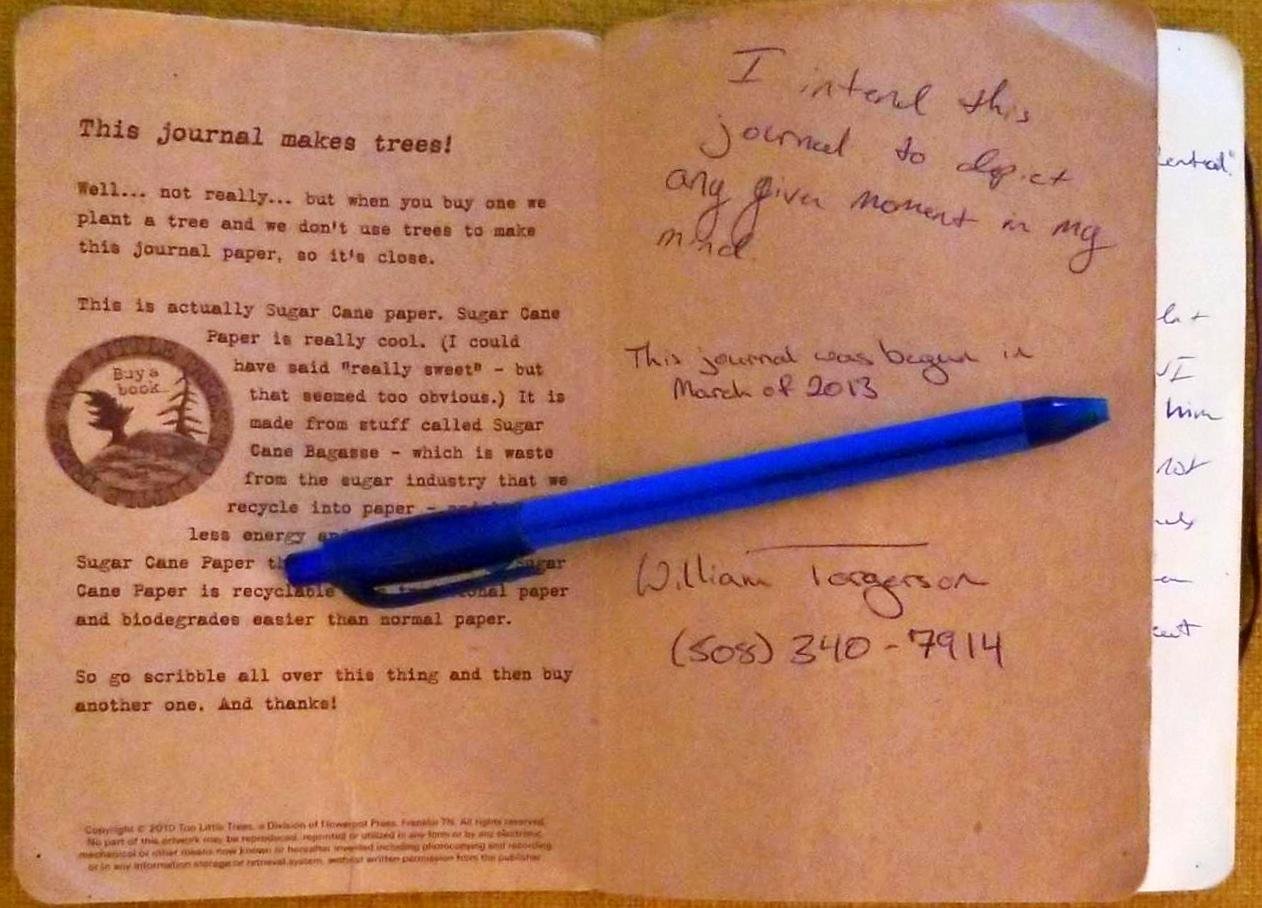 This journal makes trees!
Well... not really... but when you buy one we
plant a tree and we don't use trees to make
this journal paper, so it's close.
This is actually Sugar Cane paper. Sugar Cane
Paper is really cool. (I could
have said "really sweet" - but
that seemed too obvious.) It is
made from stuff called Sugar
Cane Bagasse - which is waste
from the sugar industry that we
recycle into paper -
less energy
Sugar Cane Paper Sugar
Cane Paper is recyclable paper
and biodegrades easier than normal paper.
So go scribble all over this thing and then buy
another one. And thanks!
Buy a
book
Copyright © 2010 Too Little Trees, a Division of Flowerpot Press, Franklin TN. All rights reserved.
No part of this artwork may be reproduced, reprinted or utilized in any form or by any electronic,
mechanical or other means now known or hereafter invented including photocopying and recording
or in any information storage or retrieval system, without written permission from the publisher
I intend this
journal to depict
any given moment in my
mind.
This journal was begun in
March of 2013
William Torgerson
(508) 340-7914
I
him
not